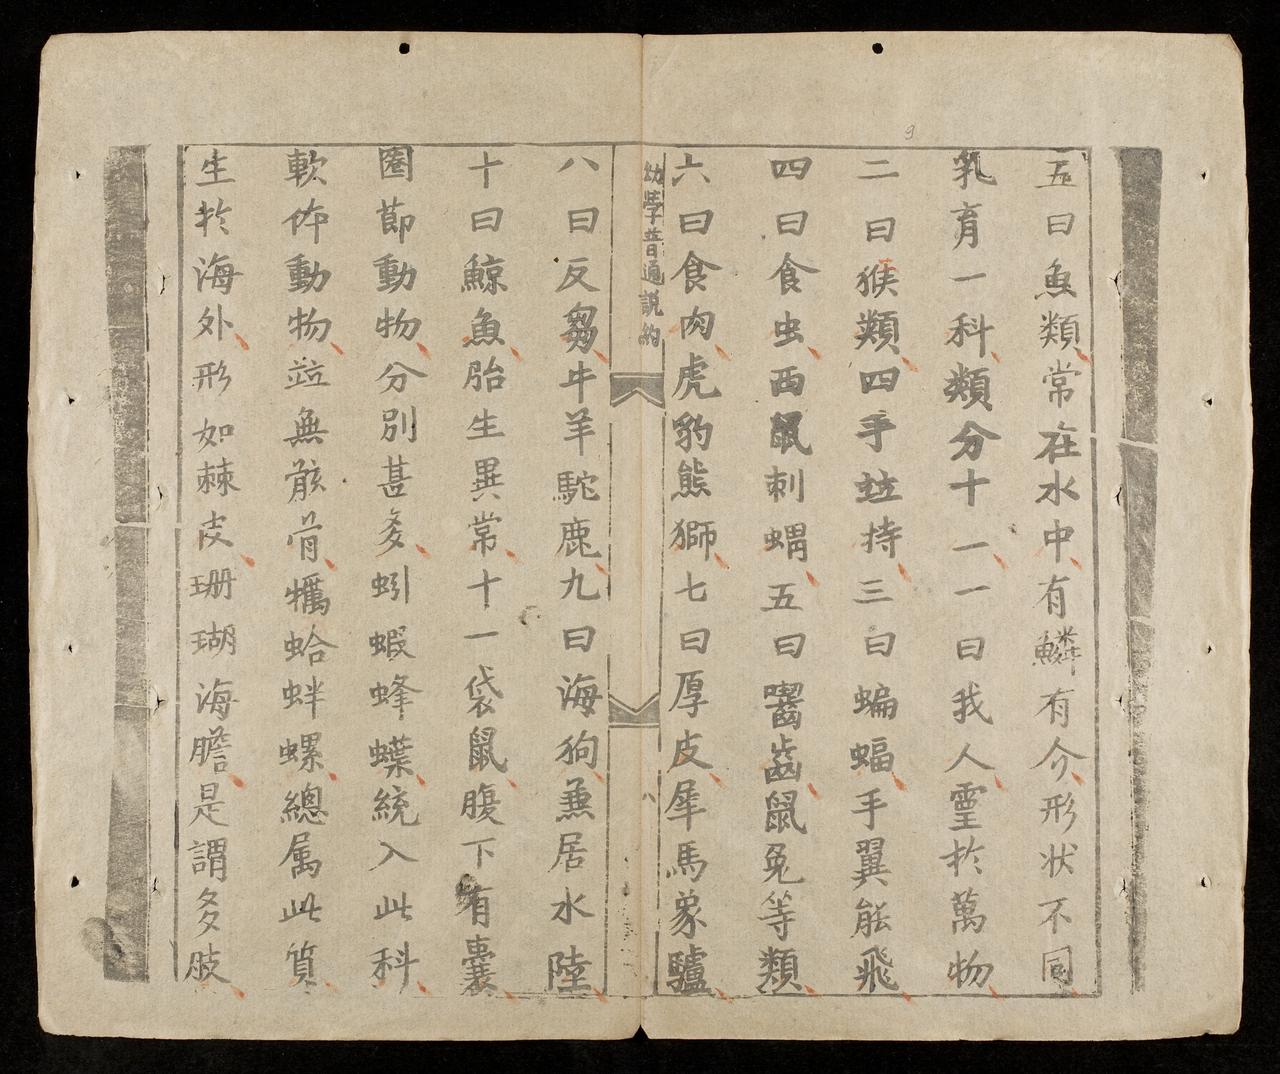 五曰魚類常在水中有鱗有介形状不同
乳育一科類分十一一曰我人霊於萬物
二曰猴類四手竝持三曰蝙蝠手翼能飛
四曰食虫西鼠刺蝟五曰嚙齒鼠兔等類
六曰食肉虎豹熊獅七曰厚皮犀馬象驢
幼學普通説約
八
八曰反芻牛羊駝鹿九曰海狗兼居水陸
十曰鯨魚胎生異常十一袋鼠腹下有囊
圈節動物分別甚多蚓蝦蜂蝶統入此科
軟体動物竝無骸骨蠣蛤蚌螺總属此質
生於海外形如棘皮珊瑚海膽是謂多肢
9